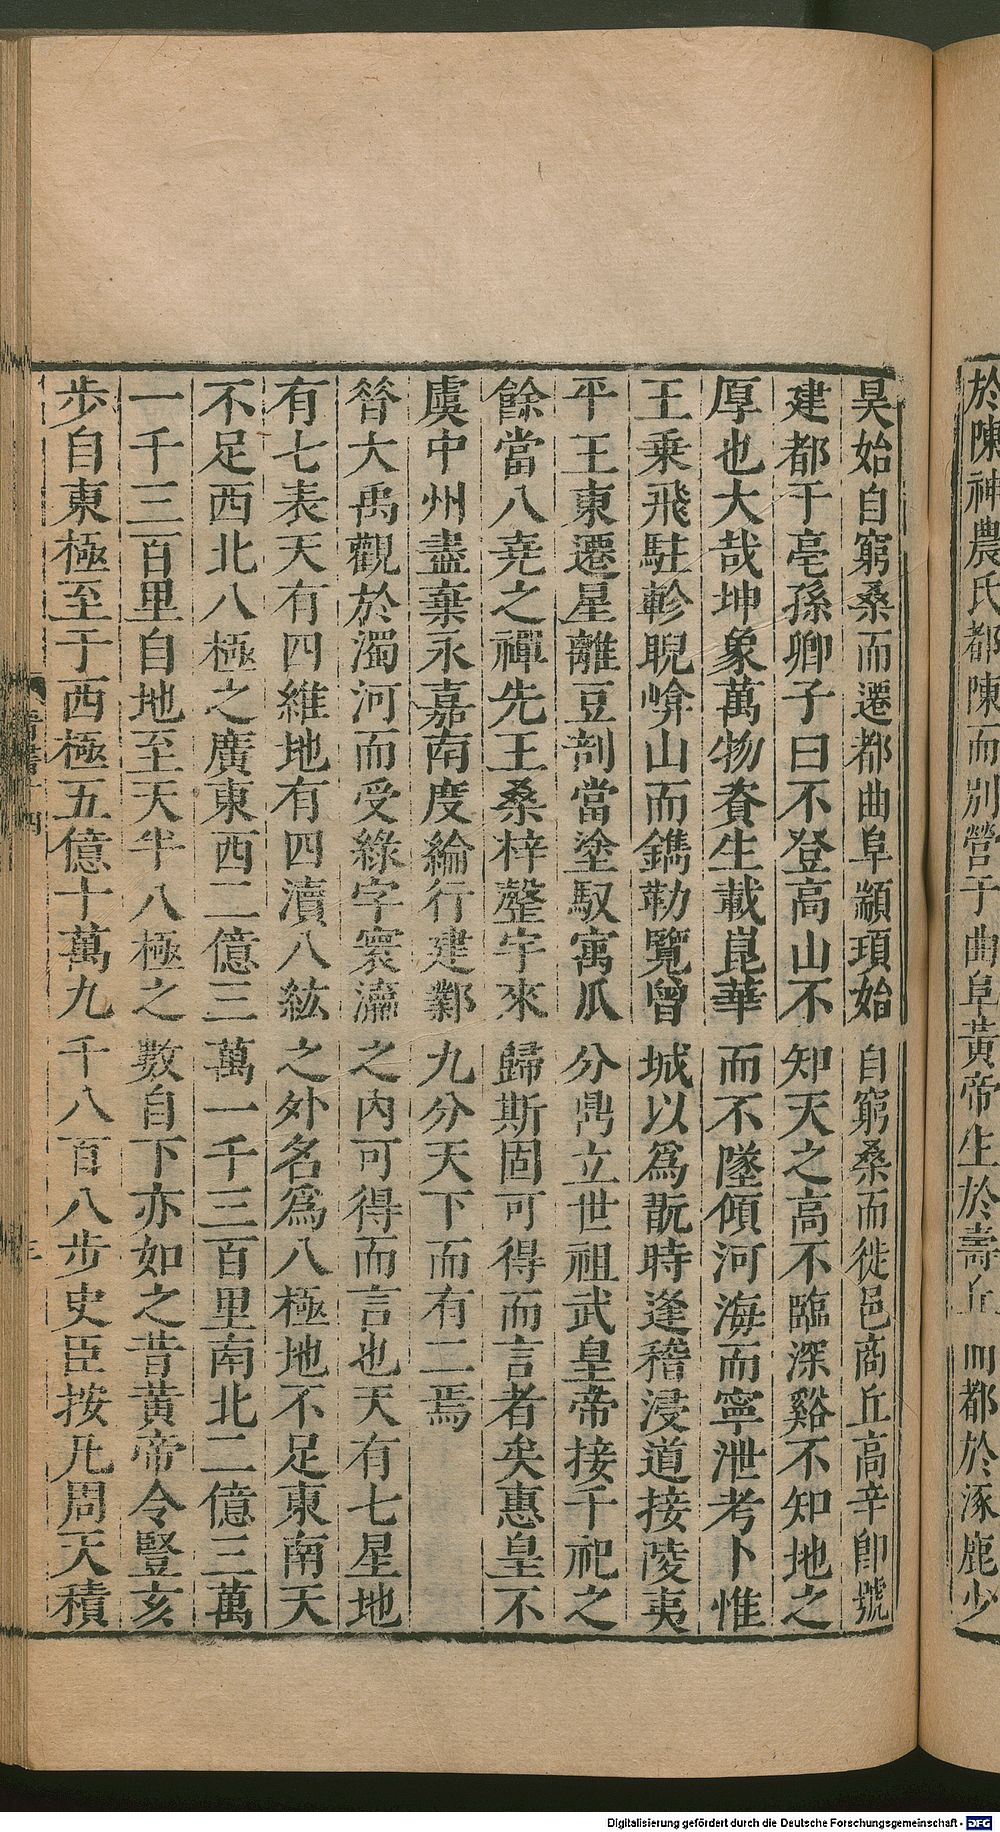 於陳神農氏都陳而別營于曲阜黃帝生於壽丘而都於涿鹿少
昊始自窮桑而遷都曲阜顓頊始自窮桑而徙邑商丘高辛卽號
建都于亳孫卿子曰不登高山不知天之高不臨深谿不知地之
厚也大哉坤象萬物資生載崑華而不墜傾河海而寧泄考卜惟
王乗飛駐軫睨崤山而鐫勒覽曾城以爲翫時逢稽浸道接陵夷
平王東遷星離豆剖當塗馭寓瓜分鼎立世祖武皇帝接千祀之
餘當八堯之禪先王桑梓罄宇來歸斯固可得而言者矣惠皇不
虞中州盡棄永嘉南度綸行建鄴九分天下而有二焉
昝大禹觀於濁河而受綠字寰瀛之內可得而言也天有七星地
有七表天有四維地有四瀆八紘之外名爲八極地不足東南天
不足西北八極之廣東西二億三萬一千三百里南北二億三萬
一千三百里自地至天半八極之數自下亦如之昔黃帝令豎亥
步自東極至于西極五億十萬九千八百八步史臣按凡周天積
晉書十四
Digitalisierung gefördert durch die Deutsche Forschungsgemeinschaft - DFG